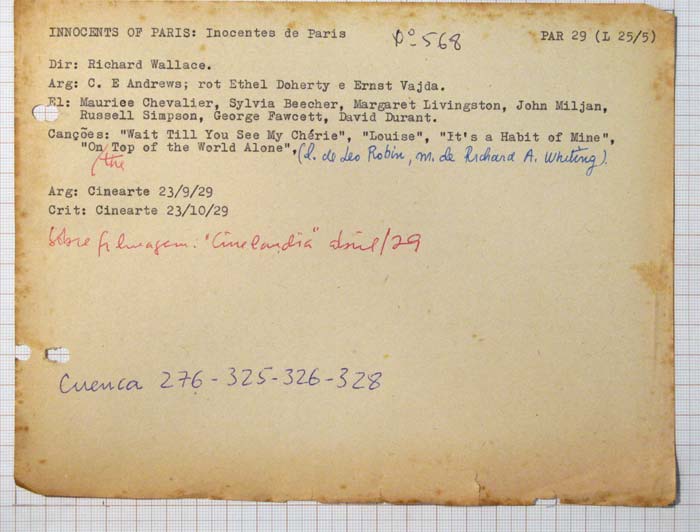 INNOCENTS OF PARIS: Inocentes de Paris Pº 568 PAR 29 (L 25/5)
Dir: Richard Wallace.
Arg: C. E Andrews; rot Ethel Doherty e Ernst Vajda.
El: Maurice Chevalier, Sylvia Beecher, Margaret Livingston, John Miljan,
Russell Simpson, George Fawcett, David Durant.
Canções: "Wait Till You See My Chérie", "Louise", "It's a Habit of Mine",
"On Top of the World Alone", (l. de Leo Robin, m. de Richard A. Whiting).
/the
Arg: Cinearte 23/9/29
Crit: Cinearte 23/10/29
Sobre filmagem: "Cinelandia" abril/29
Cuenca 276-325-326-328